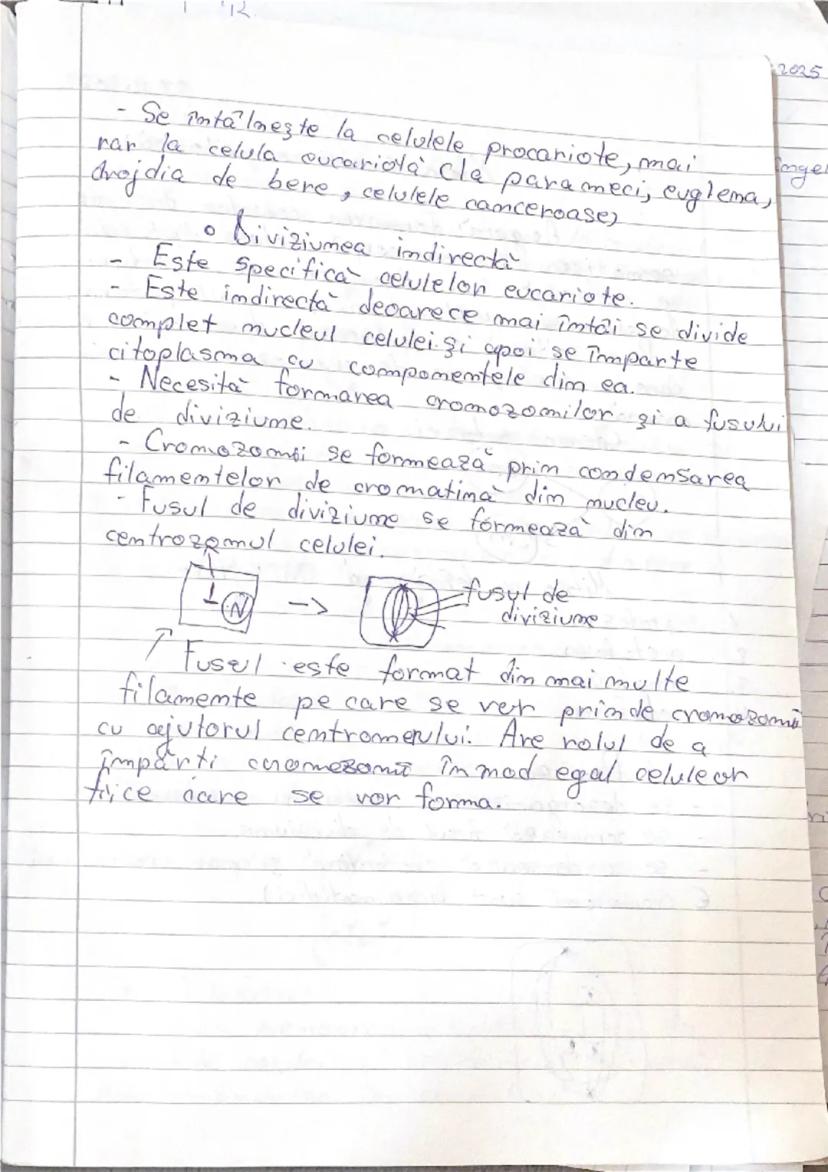 2025
- Se întâlnește la celulele procariote, mai
rar la celula eucariotă (la parameci, euglema,
drojdia de bere, celulele canceroase)
o Diviziunea indirectă
- Este specifică celulelor eucariote.
- Este indirectă deoarece mai întâi se divide
complet nucleul celulei și apoi se împarte
citoplasma cu componentele din ea.
- Necesită formarea cromozomilor și a fusului
de diviziune.
- Cromozomii se formează prin condensarea
filamentelor de cromatină din nucleu.
- Fusul de diviziune se formează din
centrozomul celulei.
N
→
fusul de
diviziune
Fusul este format din mai multe
filamente pe care se vor prinde cromozomii
cu ajutorul centromerului. Are rolul de a
împărți cromozomii în mod egal celuleor
fiice care se vor forma.